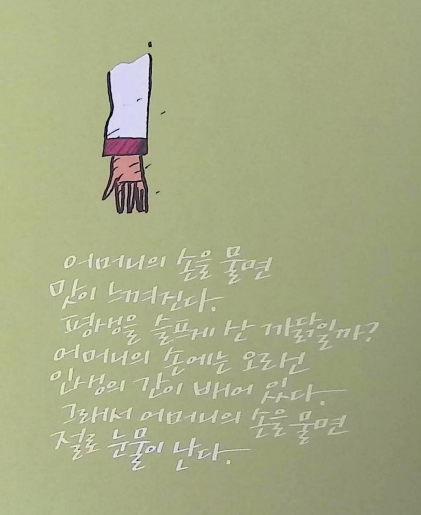 어머니의 손을 물면
맛이 느껴진다.
평생을 슬프게 산 까닭일까?
어머니의 손에는 오라선
인생의 간이 배어 있다.
그래서 어머니의 손을 물면
절로 눈물이 난다.